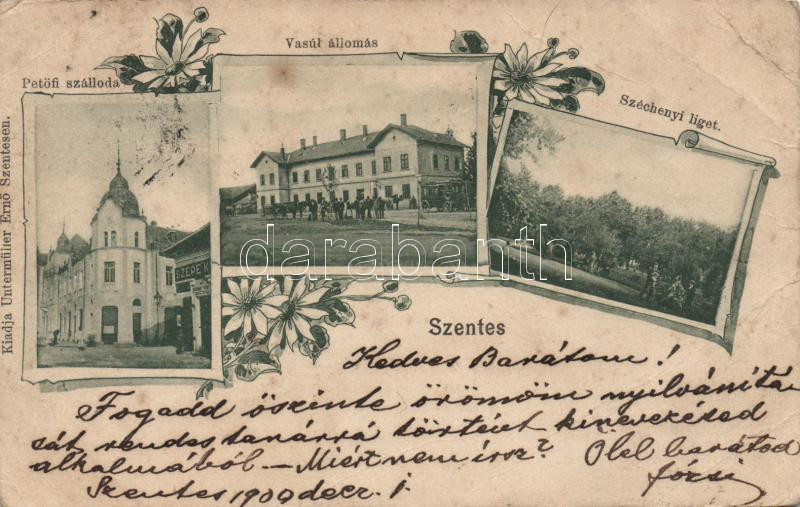 Vasúl állomás
Petöfi szálloda
Széchenyi liget.
Kiadja Untermüller Ernő Szentesen.
SZEPE K
darabanth
Szentes
Kedves Barátom!
Fogadd őszinte örömöm nyilvánítá-
sát rendes tanárrá történt kinevezésed
alkalmából – Miért nem írsz? Ölel barátod
Szentes 1900 decz. 1. Józsi